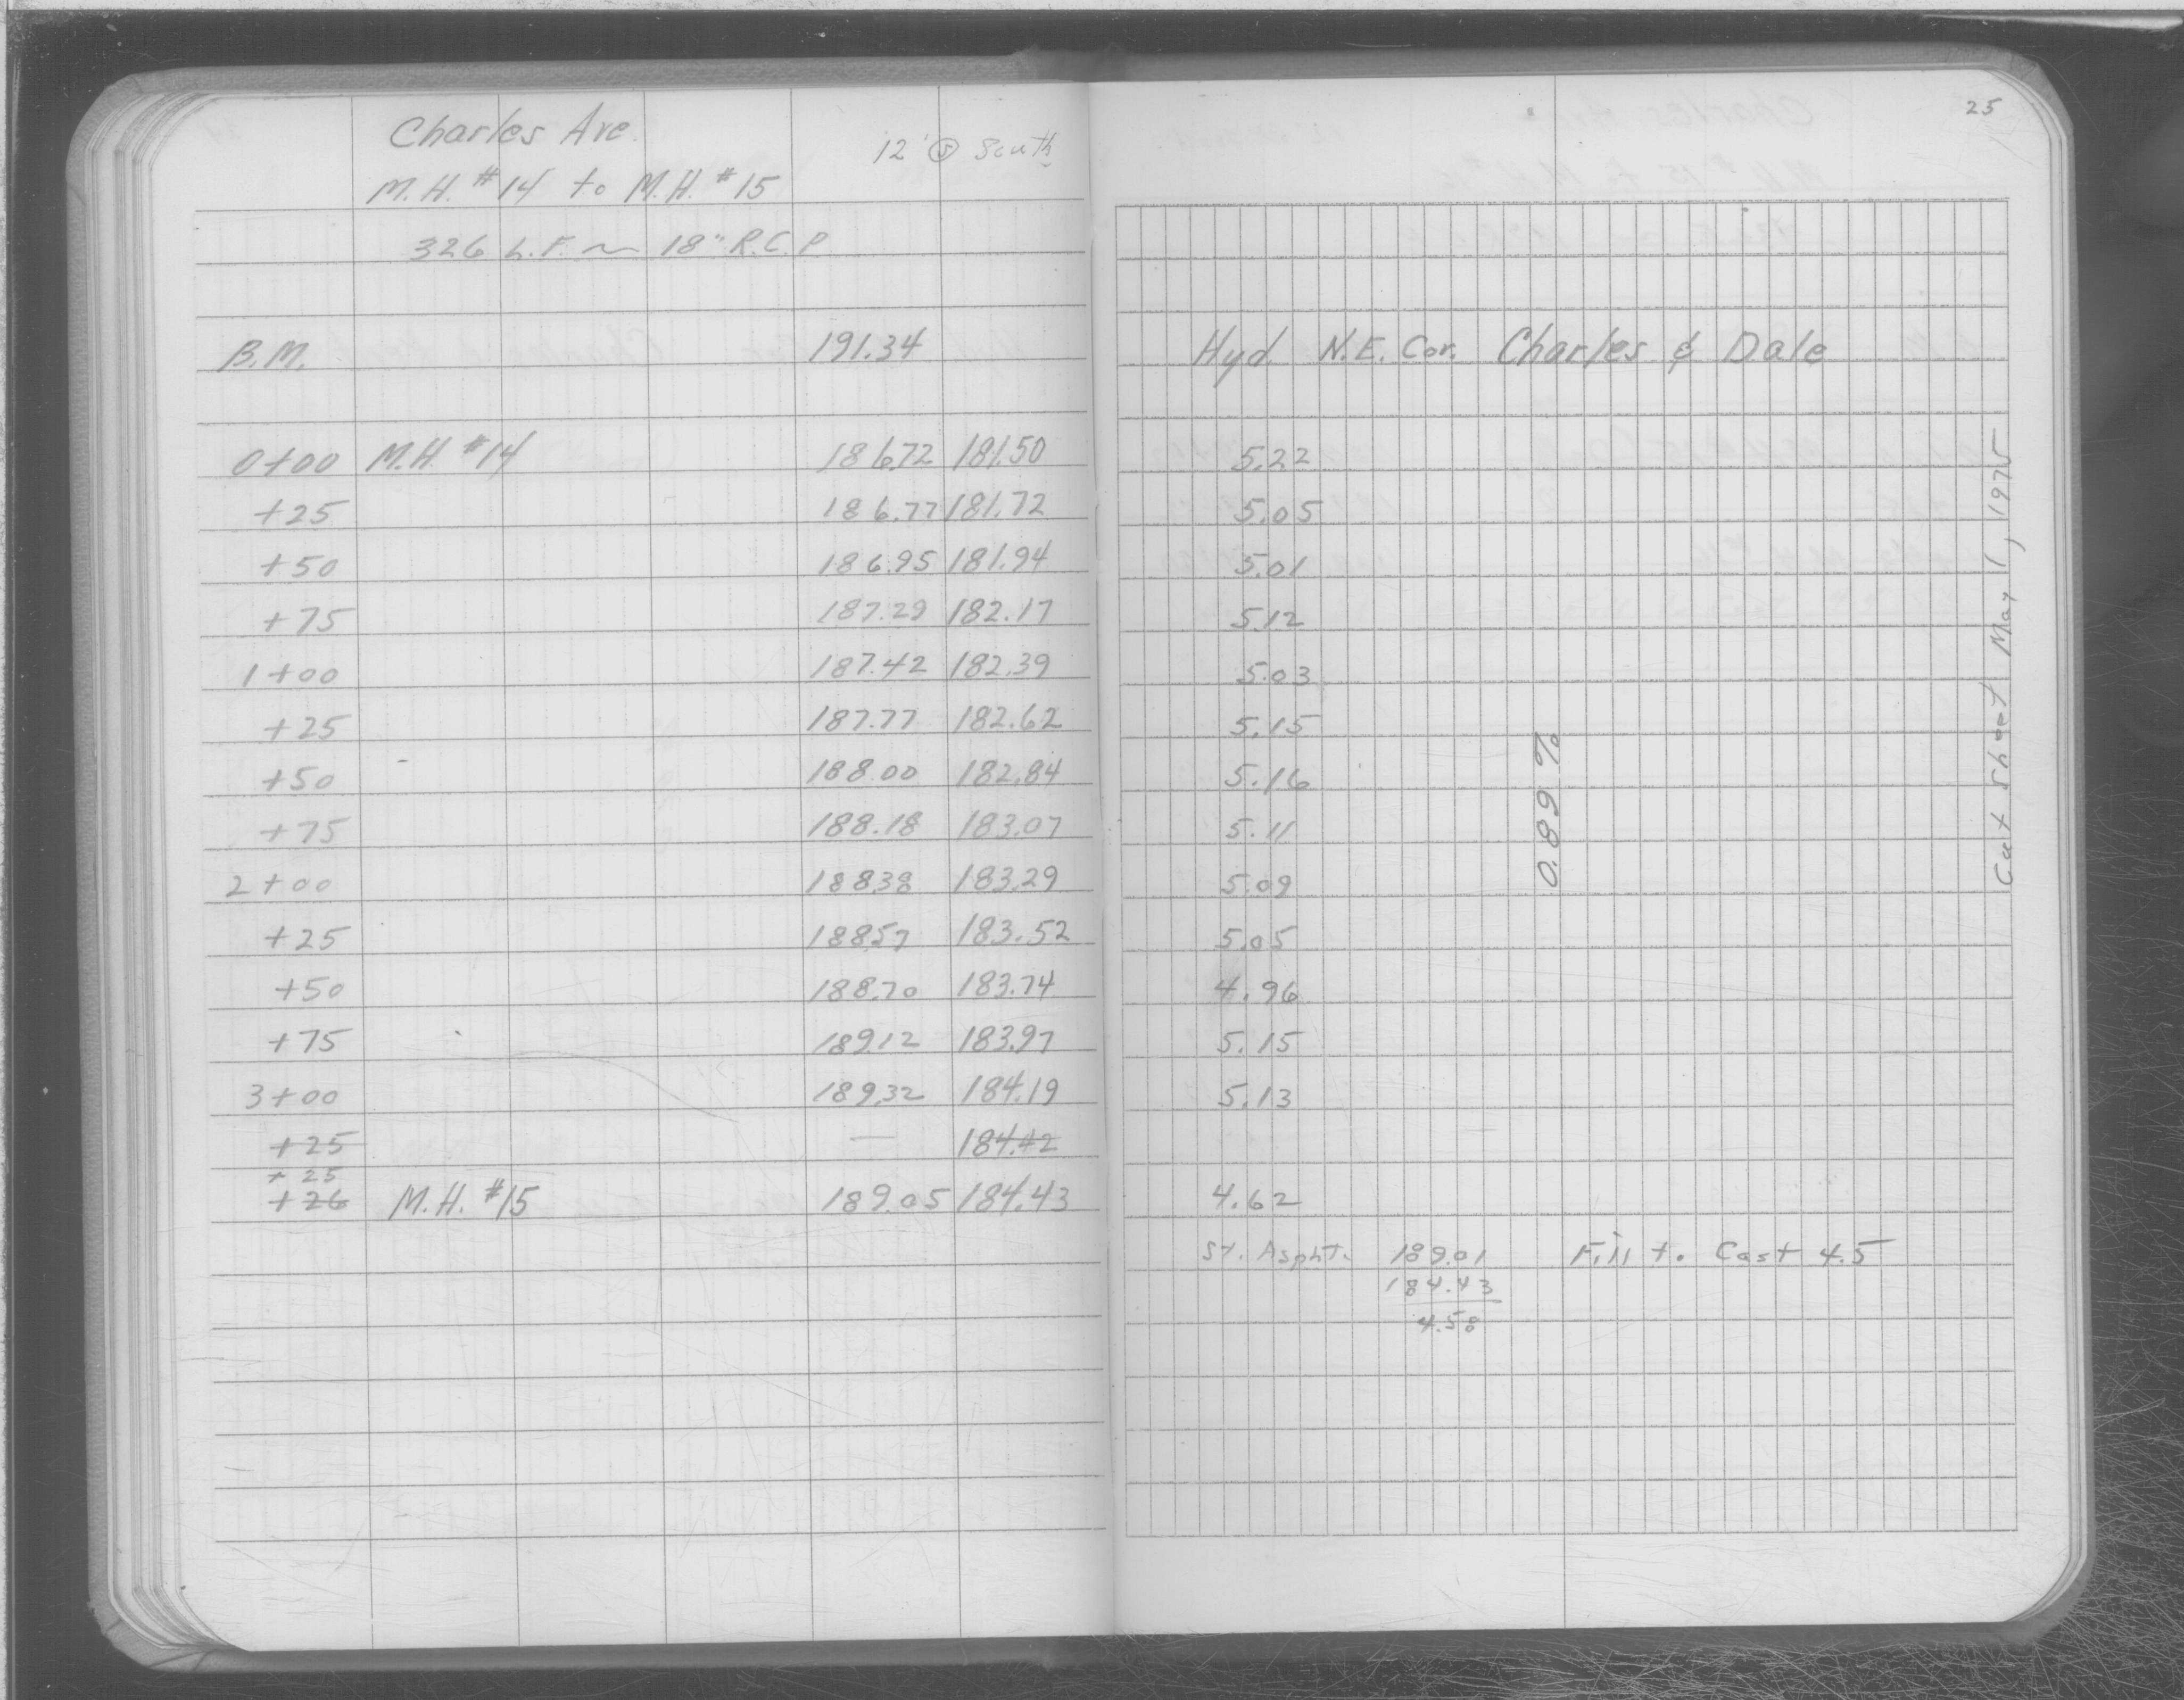 25
Charles Ave.
12' @ South
M.H. #14 to M.H. #15
326 L.F. ~ 18" R.C.P
B.M. 191.34 Hyd. N.E. Cor. Charles & Dale
0+00 M.H. #14 186.72 181.50 5.22
+25 186.77 181.72 5.05
+50 186.95 181.94 5.01
+75 187.29 182.17 5.12
1+00 187.42 182.39 5.03
+25 187.77 182.62 5.15
+50 188.00 182.84 5.16
+75 188.18 183.07 5.11
2+00 188.38 183.29 5.09
+25 188.57 183.52 5.05
+50 188.70 183.74 4.96
+75 189.12 183.97 5.15
3+00 189.32 184.19 5.13
+25 — 184.42
+25
+26 M.H. #15 189.05 184.43 4.62
St. Aspht. 189.01 Fill to Cast 4.5
184.43
4.58
0.89 %
Cut Sheet May 1, 1975